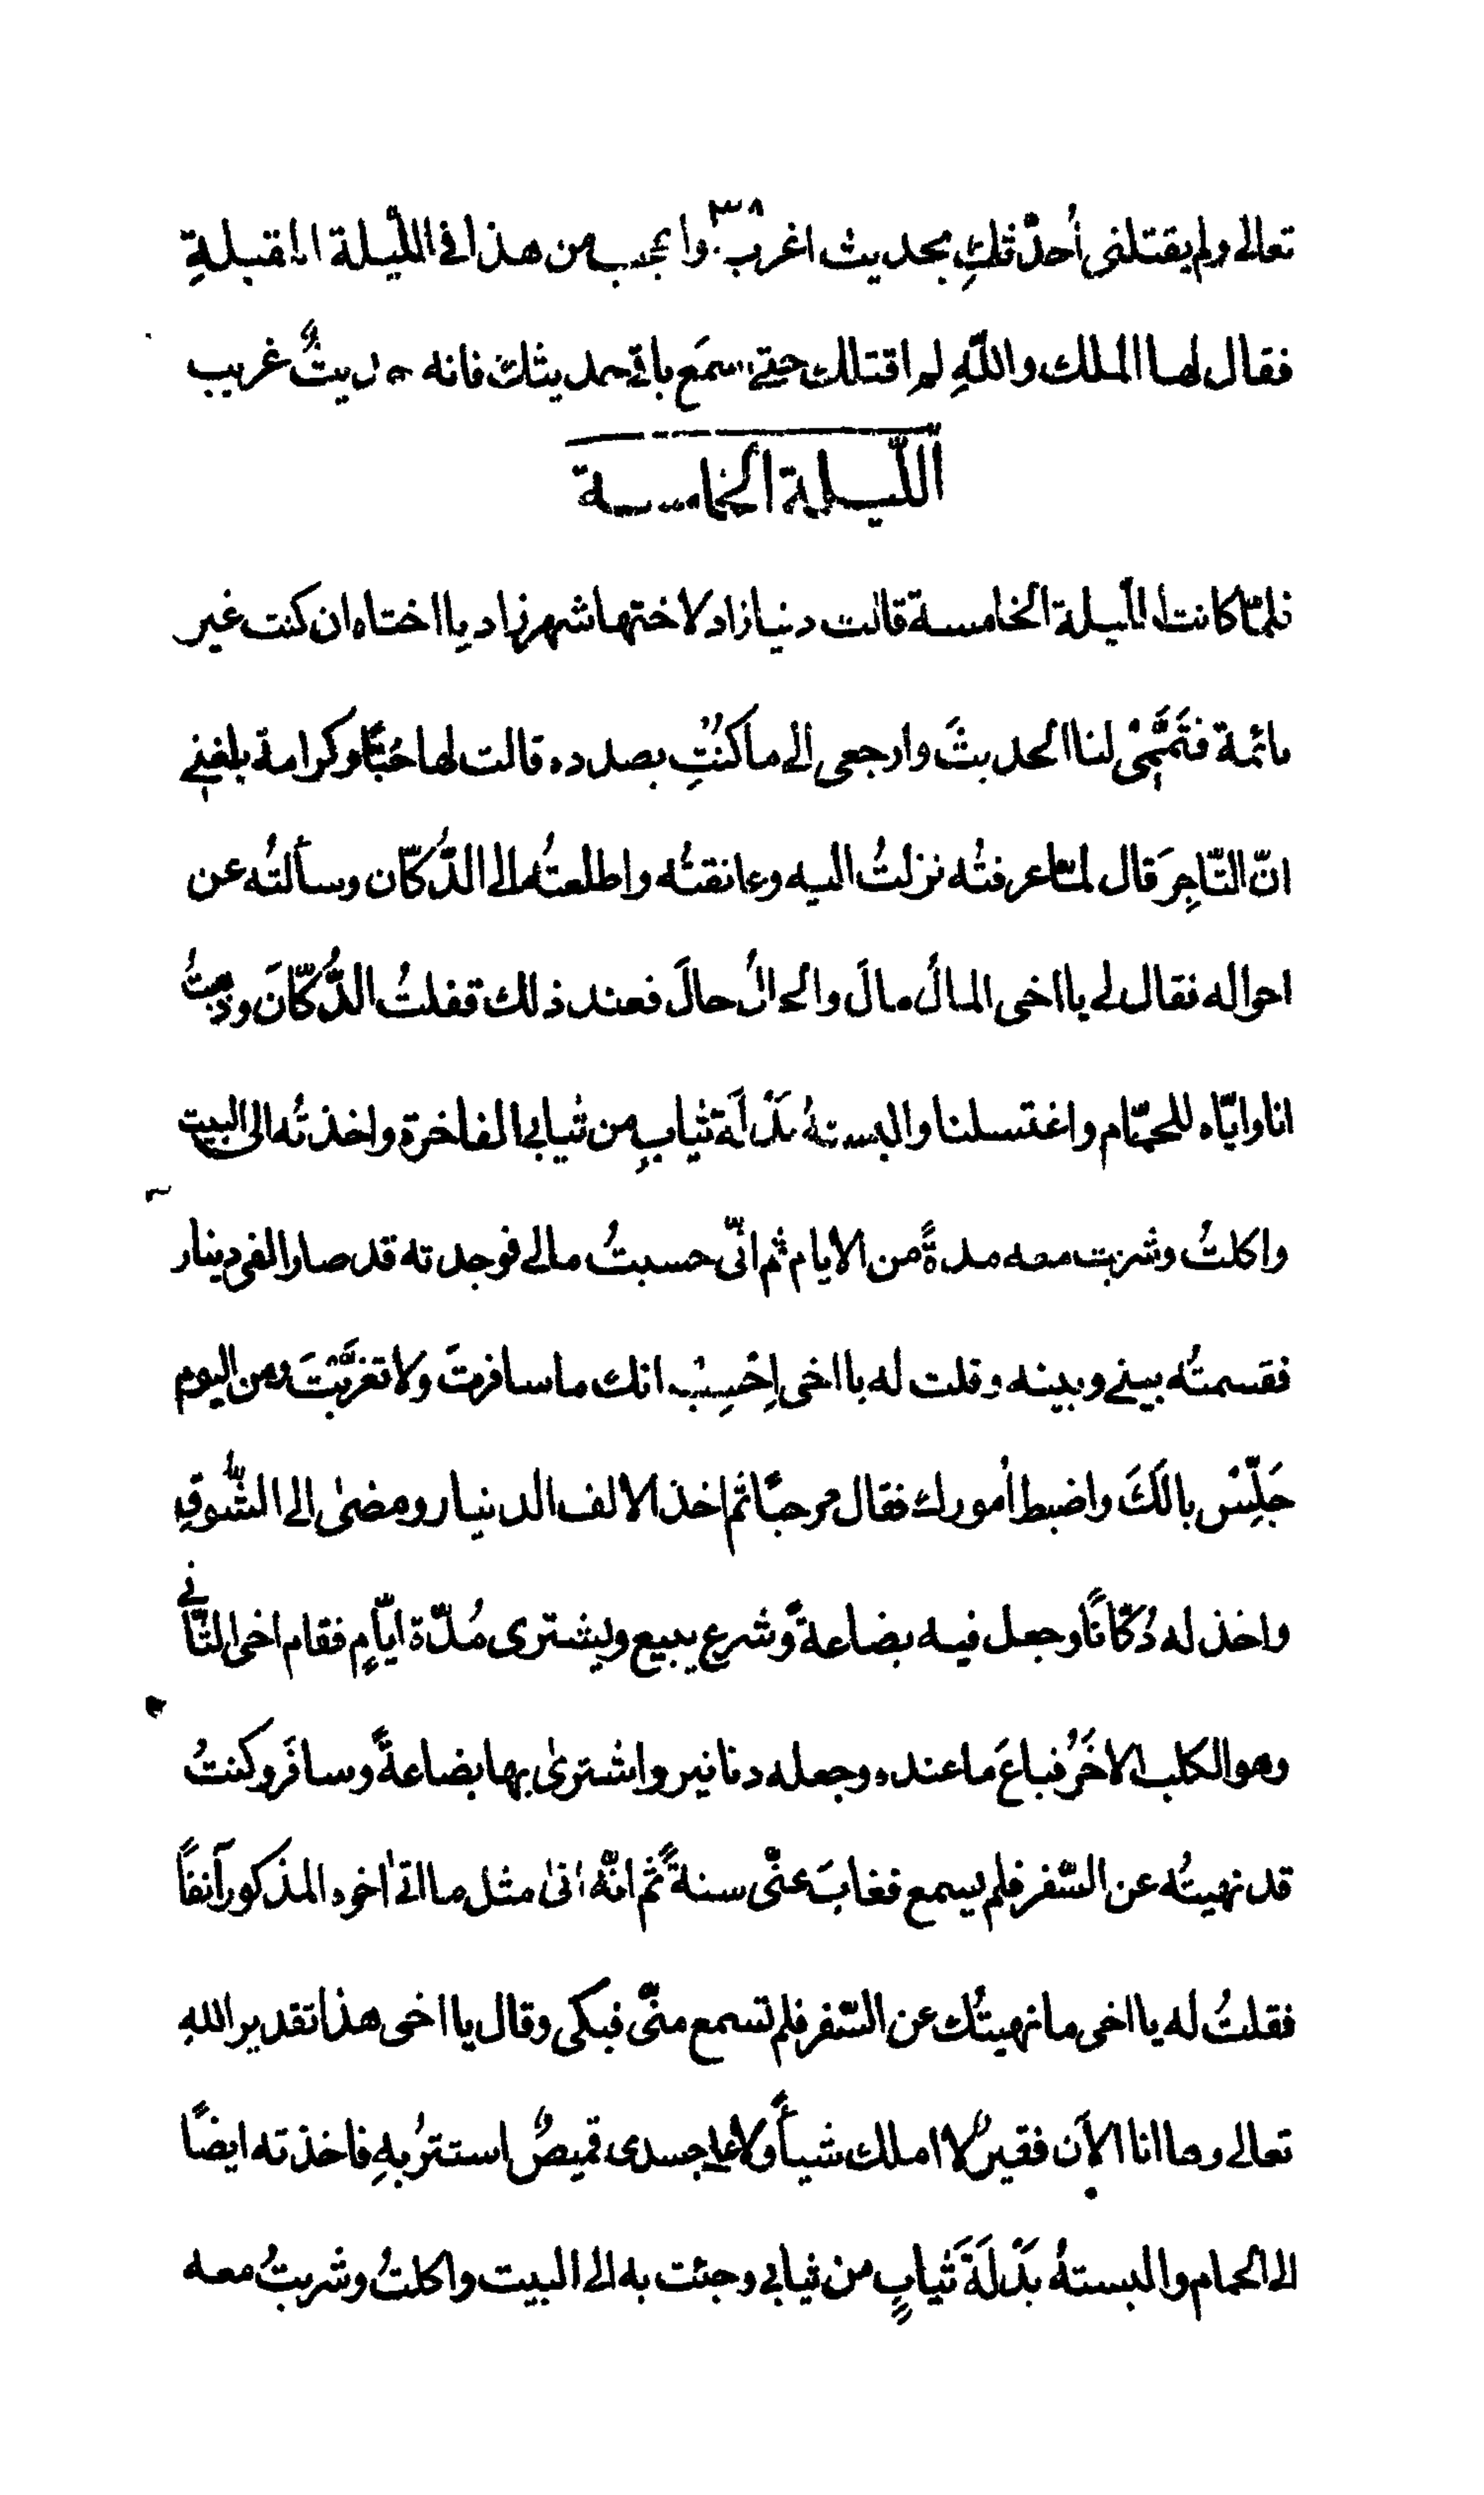 ٣٨
تعالى ولم يقتلنى أحدّثكِ بحديث اغرب واعجب من هذا فى اللّيلة المقبلةِ
فقال لها الملك واللّهِ لم اقتلك حتى اسمَع باقى حديثك فانه حديثٌ غريب
اللّيلة الخامسة
فلمّا كانت الليلة الخامسة قالت دنيازاد لاختها شهرزاد يا اختاه ان كنت غير
نائمة فتَمِّمِى لنا الحديثَ وارجعى الى ما كنتِ بصدده قالت لها حُبًّا وكرامة بلغنى
انّ التّاجِرَ قال لمّا عرفتُه نزلتُ اليه وعانقتُه واطلعتُه الى الدُّكّان وسألتُه عن
احواله فقال لى يا اخى المالُ مالَ والحالُ حالَ فعند ذلك قفلتُ الدُّكّانَ وذهبتُ
انا وايّاه للحمّام واغتسلنا والبستهُ بَدْلَةَ ثيابٍ من ثيابى الفاخرة واخذتُه الى البيت
واكلتُ وشربت معه مدةً من الايام ثم انّى حسبتُ مالى فوجدته قد صار الفى دينار
فقسمتُه بينى وبينه وقلت له يا اخى اِحْسِبْ انك ما سافرتَ ولا تغرَّبْتَ ومن اليوم
جَلِّسْ بالَكَ واضبط اُمورك فقال مرحبًا ثم اخذ الالف الدينار ومضىٰ الى السُّوقِ
واخذ له دُكّانًا وجعل فيه بضاعةً وشرع يبيع ويشترى مُدّة ايّامٍ فقام اخى الثّانى
وهو الكلب الاخَرُ فباعَ ما عنده وجعله دنانير واشترىٰ بها بضاعةً وسافَر وكنتُ
قد نهيتُه عن السّفر فلم يسمع فغابَ عنّى سنةً ثم انّهُ اتىٰ مثل ما اتىٰ اخوه المذكور آنفًا
فقلتُ له يا اخى ما نهيتُك عن السّفر فلم تسمع منّى فبكى وقال يا اخى هذا تقدير اللهِ
تعالى وها انا الآن فقيرٌ لا املك شيأً ولا على جسدى قميصٌ استترُ بهِ فاخذته ايضًا
الى الحمام والبستهُ بَدْلَةَ ثيابٍ من ثيابى وجئت به الى البيت واكلتُ وشربتُ معه